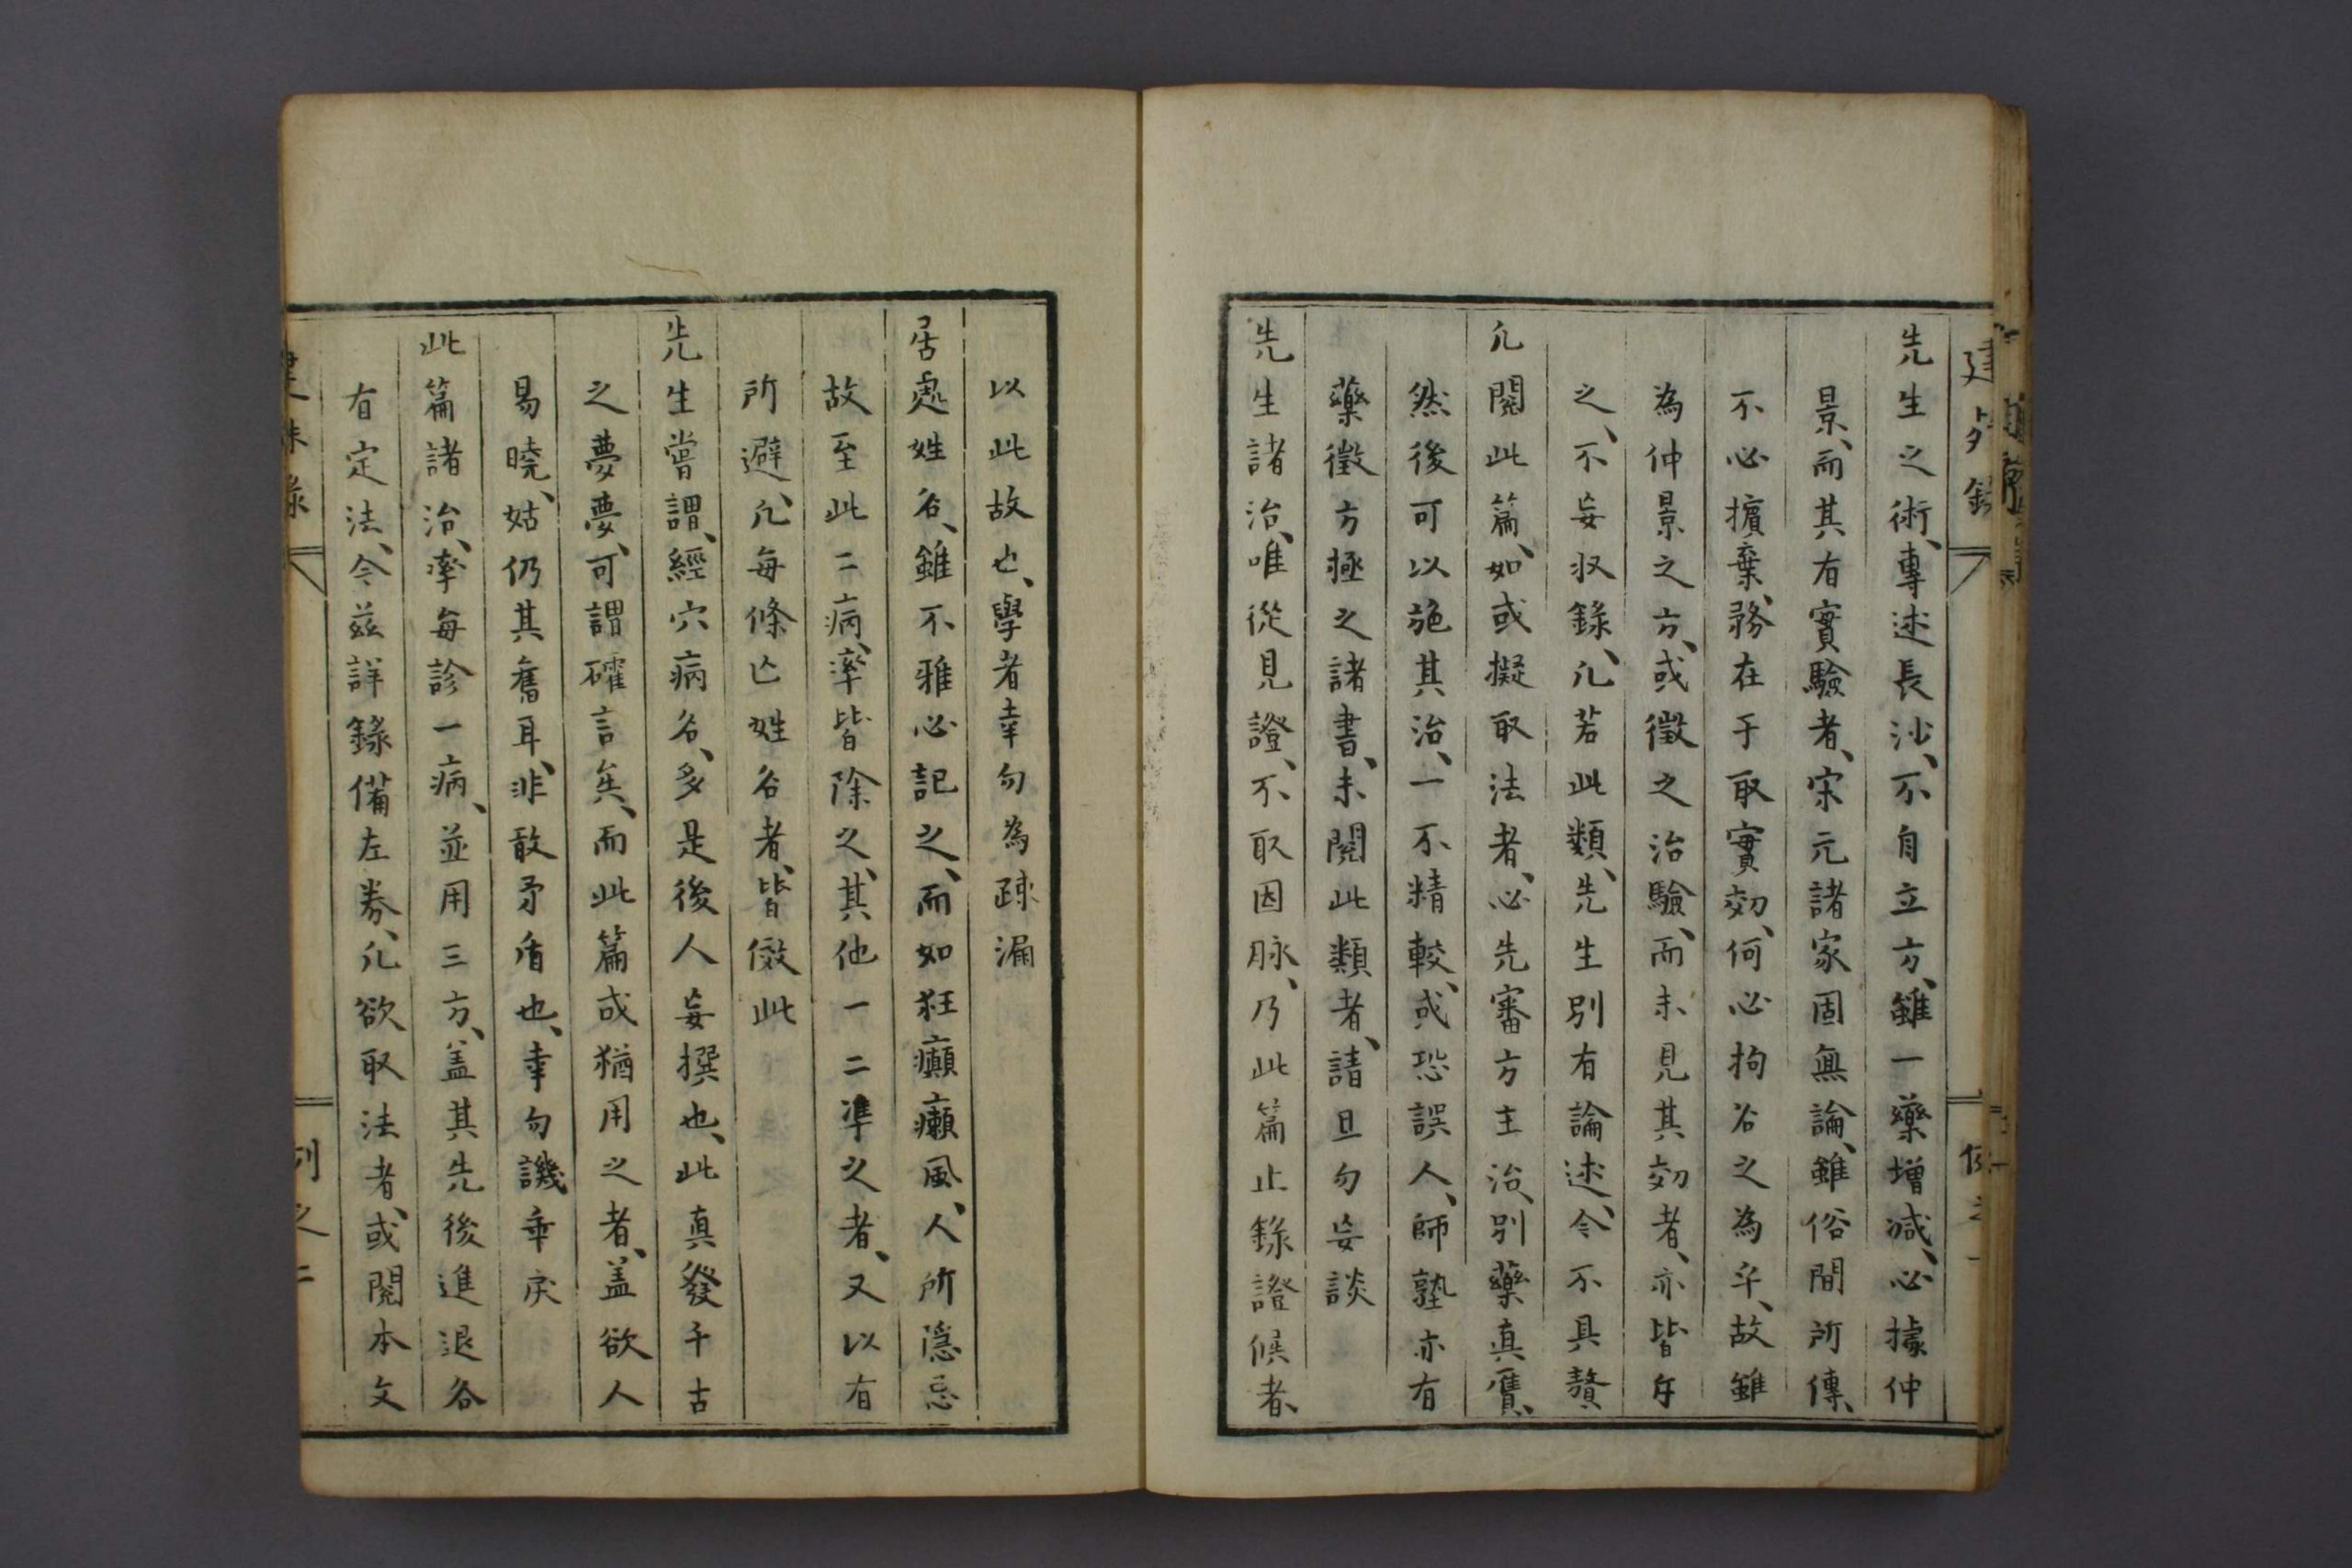 先生之術、專述長沙、不自立方、雖一藥增減、必據仲
景、而其有實驗者、宋元諸家固無論、雖俗間所傳、
不必擯棄、務在于取實効、何必拘名之為乎、故雖
為仲景之方、或徵之治驗、而未見其効者、亦皆舍
之、不妄收錄、凡若此類、先生別有論述、今不具贅
凡閱此篇、如或擬取法者、必先審方主治、別藥真贋、
然後可以施其治、一不精較、或恐誤人、師塾亦有
藥徵方極之諸書、未閱此類者、請且勿妄談
先生諸治、唯從見證、不取因脉、乃此篇止錄證候者、
以此故也、學者幸勿為疎漏
居處姓名、雖不雅必記之、而如狂癲癩風、人所隱忌
故至此二病、率皆除之、其他一二準之者、又以有
所避、凡每條亡姓名者、皆倣此
先生嘗謂、經穴病名、多是後人妄撰也、此真發千古
之夢夢、可謂確言矣、而此篇或猶用之者、蓋欲人
易曉、姑仍其舊耳、非敢矛盾也、幸勿譏乖戾
此篇諸治、率每診一病、並用三方、蓋其先後進退各
有定法、今茲詳錄備左券、凡欲取法者、或閱本文
建殊錄
例之二